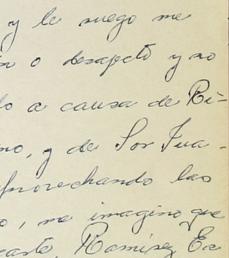 y le ruego me
o desafecto y no
a causa de Ri-
no, y de Sor Jua-
aprovechando las
o, me imagino que
Ramírez Ea